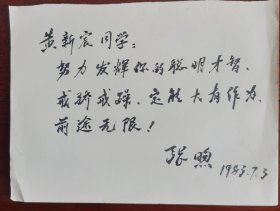 黄新宸同学：
努力发挥你的聪明才智、
戒骄戒躁、定能大有作为、
前途无限！
张煦
1983.7.3